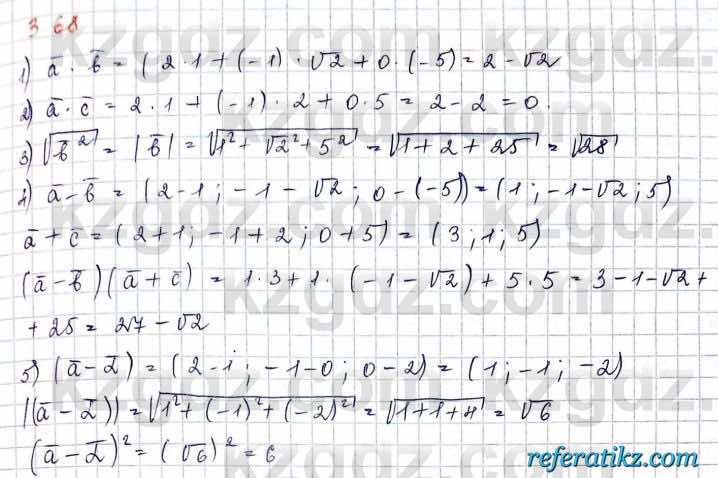 368
1) a̅ · b̅ = (2·1+(-1)·√2+0·(-5)=2-√2
2) a̅·c̅ = 2·1+(-1)·2+0·5=2-2=0.
3) √b̅² = |b̅| = √1²+√2²+5² = √1+2+25 = √28
4) a̅-b̅ = (2-1; -1-√2; 0-(-5))=(1; -1-√2; 5)
a̅+c̅=(2+1; -1+2; 0+5)=(3; 1; 5)
(a̅-b̅)(a̅+c̅) = 1·3+1·(-1-√2)+5·5=3-1-√2+
+25=27-√2
5) (a̅-d̅)=(2-1; -1-0; 0-2)=(1; -1; -2)
|(a̅-d̅))=√1²+(-1)²+(-2)²=√1+1+4=√6
(a̅-d̅)²=(√6)²=6
kzgdz.com
referatikz.com